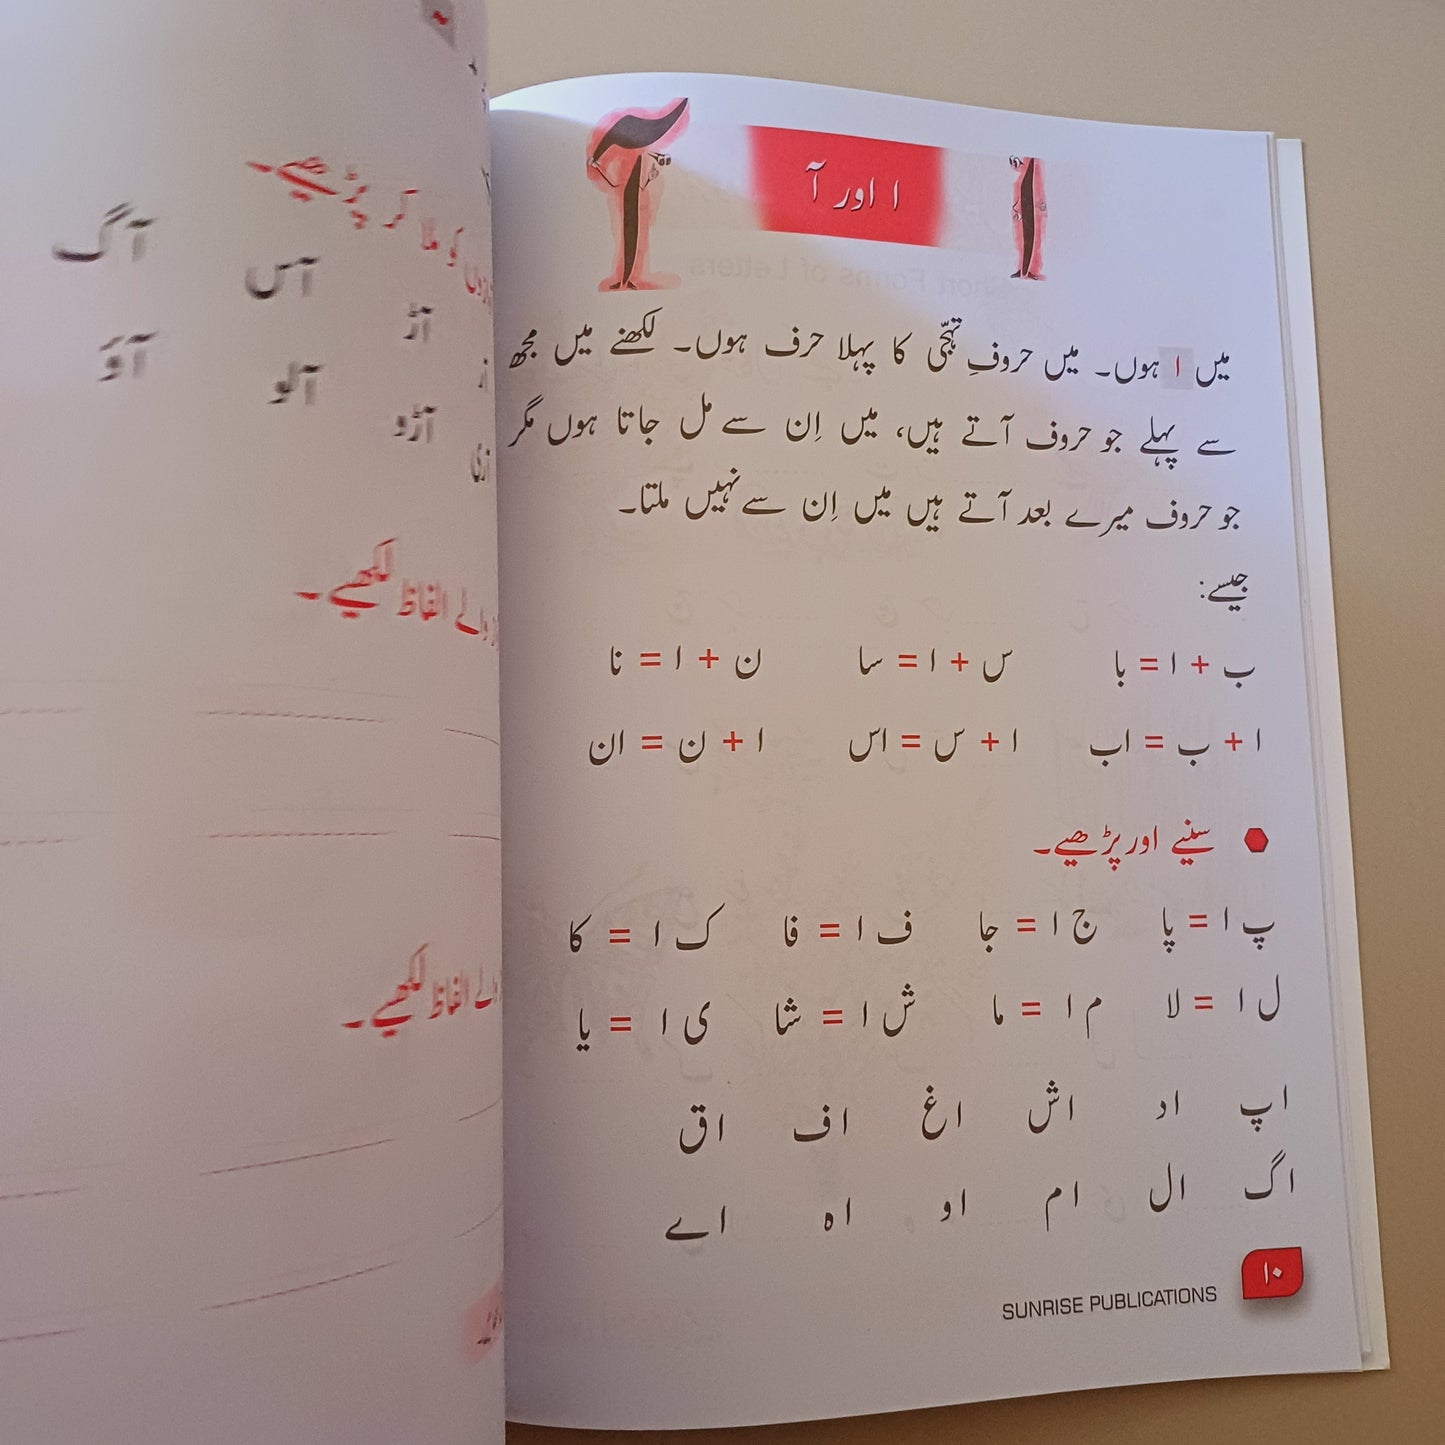 ا اور آ
میں ا ہوں۔ میں حروفِ تہجّی کا پہلا حرف ہوں۔ لکھنے میں مجھ
سے پہلے جو حروف آتے ہیں، میں اِن سے مل جاتا ہوں مگر
جو حروف میرے بعد آتے ہیں میں اِن سے نہیں ملتا۔
جیسے:
ب + ا = با س + ا = سا ن + ا = نا
ا + ب = اب ا + س = اس ا + ن = ان
سنیے اور پڑھیے۔
پ ا = پا ج ا = جا ف ا = فا ک ا = کا
ل ا = لا م ا = ما ش ا = شا ی ا = یا
ا پ ا د ا ش ا غ ا ف ا ق
ا گ ا ل ا م ا و ا ہ ا ے
۱۰
SUNRISE PUBLICATIONS
کو ملا کر پڑھیے۔
آس آگ
آڑ
آلو آؤ
آڑو
والے الفاظ لکھیے۔
الفاظ لکھیے۔